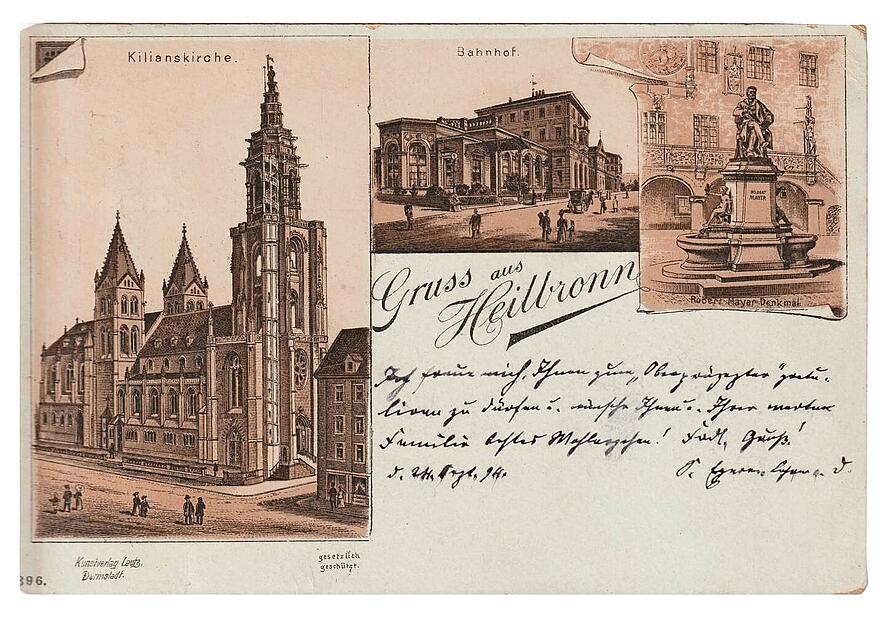 Kilianskirche.
Bahnhof.
ROBERT
MAYER
Robert Mayer Denkmal.
Gruss aus
Heilbronn
Ich freue mich, Ihnen zum „Oberpräzeptor" gratu-
liren zu dürfen u. wünsche Ihnen u. Ihrer werten
Familie echtes Wohlergehen! Fdl. Gruß!
d. 24. Sept. 94.
Kunstverlag Lautz,
Darmstadt.
gesetzlich
geschützt.
396.